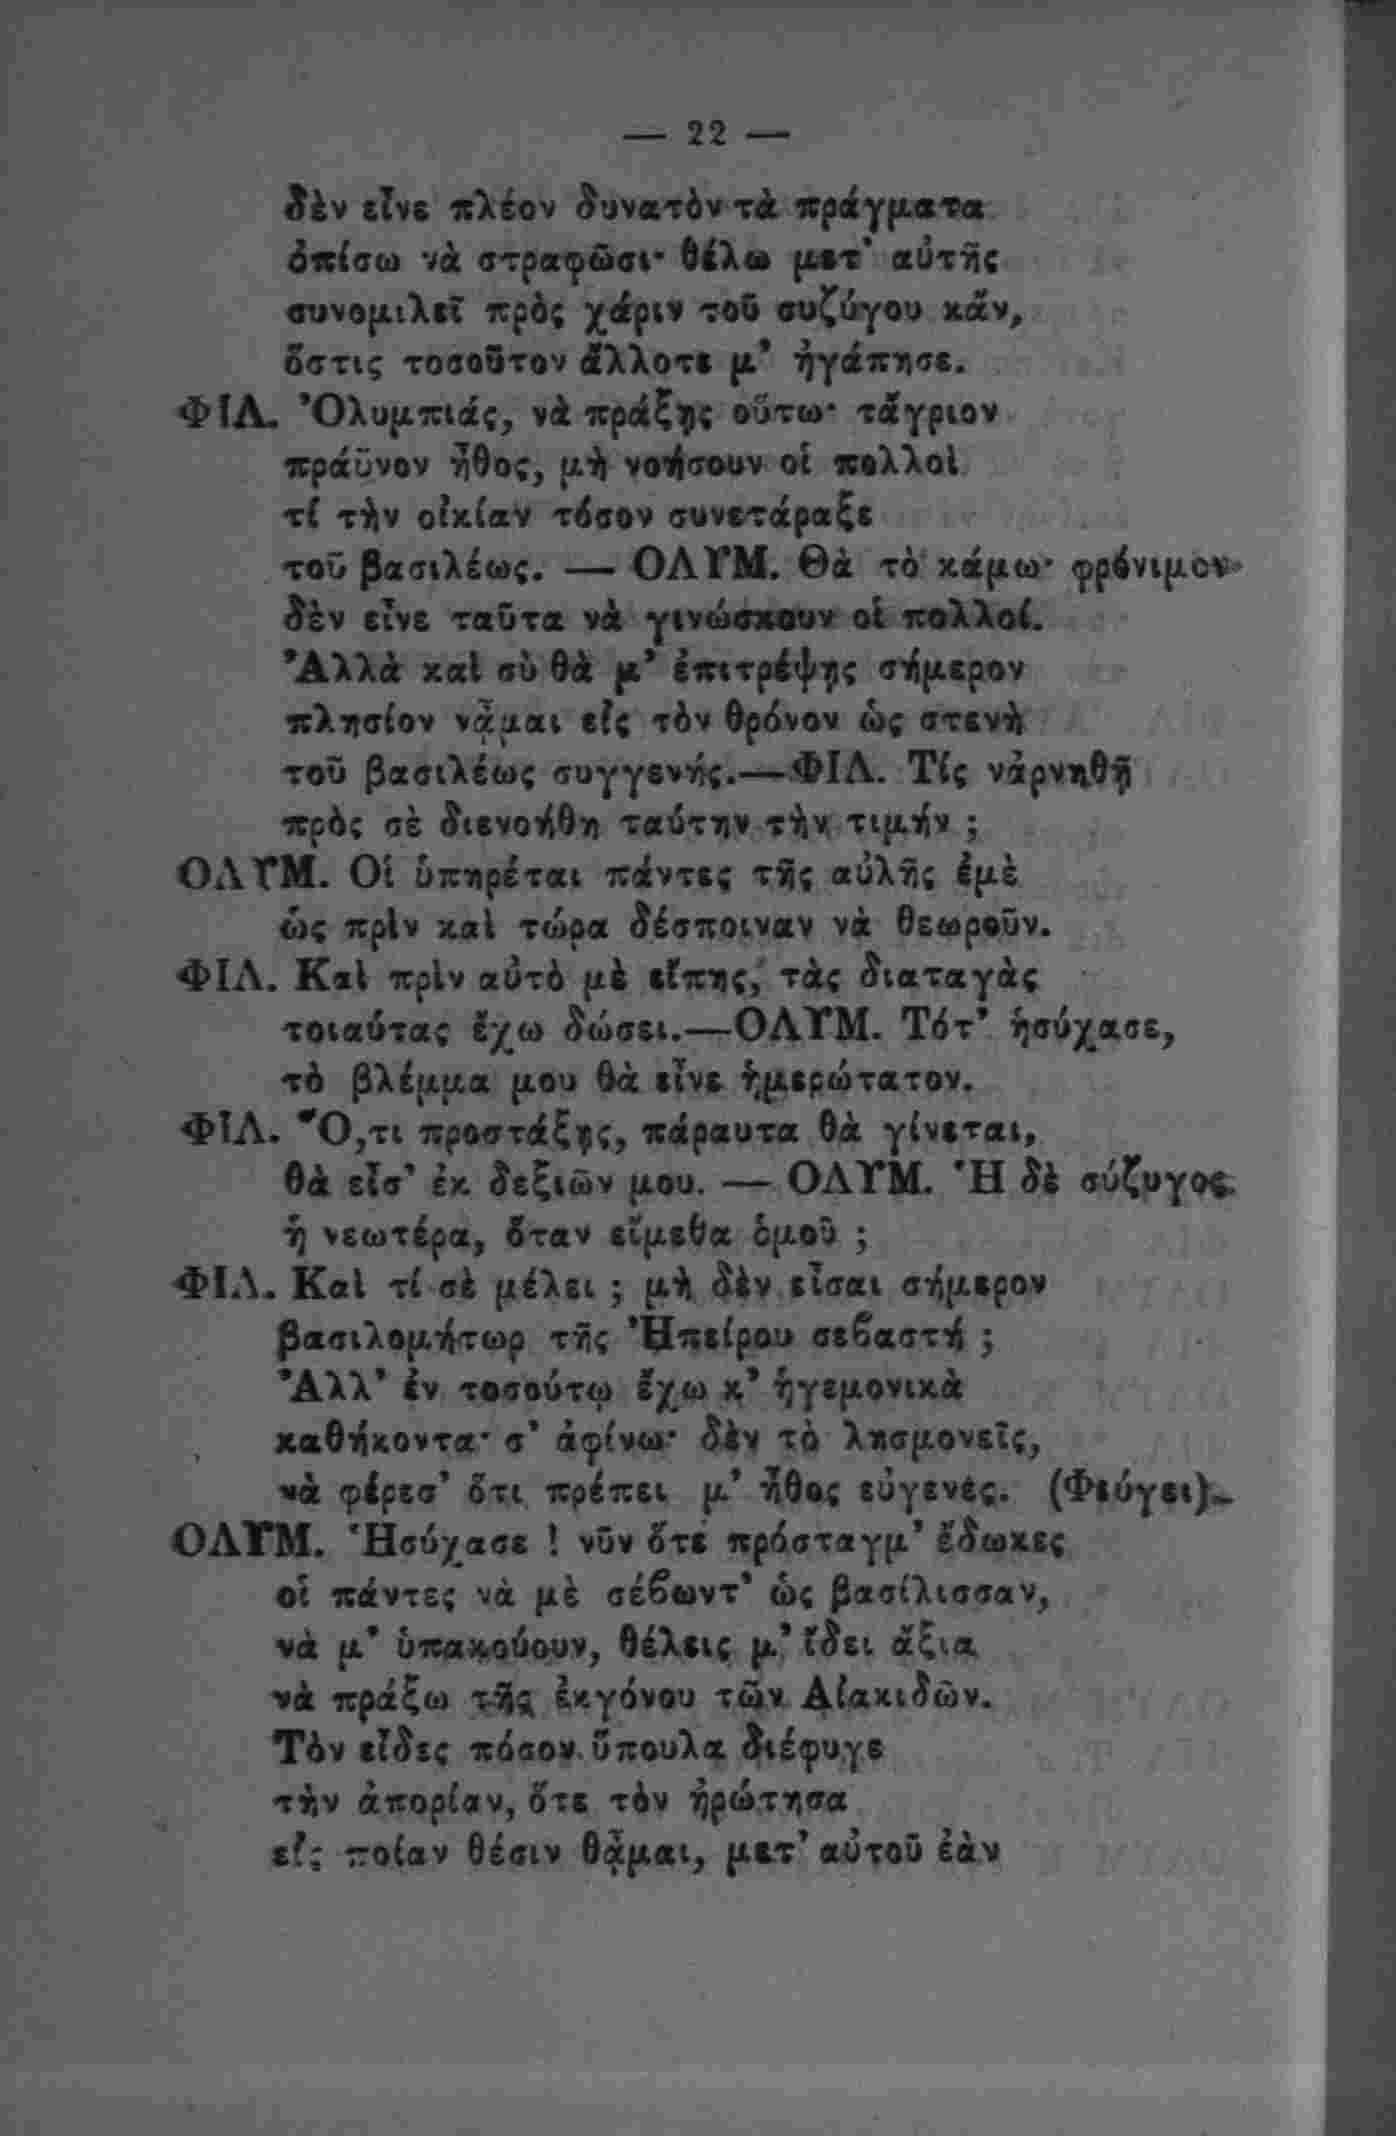 — 22 —
δὲν εἶνε πλέον δυνατὸν τὰ πράγματα
ὀπίσω νὰ στραφῶσι· θέλω μετ᾽ αὐτῆς
συνομιλεῖ πρὸς χάριν τοῦ συζύγου κἄν,
ὅστις τοσοῦτον ἄλλοτε μ᾽ ἠγάπησε.
ΦΙΛ. Ὀλυμπιάς, νὰ πράξῃς οὕτω· τἄγριον
πράϋνον ἦθος, μὴ νοήσουν οἱ πολλοὶ
τί τὴν οἰκίαν τόσον συνετάραξε
τοῦ βασιλέως. — ΟΛΥΜ. Θὰ τὸ κάμω· φρόνιμον
δὲν εἶνε ταῦτα νὰ γινώσκουν οἱ πολλοί.
Ἀλλὰ καὶ σὺ θὰ μ᾽ ἐπιτρέψῃς σήμερον
πλησίον νᾆμαι εἰς τὸν θρόνον ὡς στενὴ
τοῦ βασιλέως συγγενής.—ΦΙΛ. Τίς νἀρνηθῇ
πρὸς σὲ διενοήθη ταύτην τὴν τιμήν ;
ΟΛΥΜ. Οἱ ὑπηρέται πάντες τῆς αὐλῆς ἐμὲ
ὡς πρὶν καὶ τώρα δέσποιναν νὰ θεωροῦν.
ΦΙΛ. Καὶ πρὶν αὐτὸ μὲ εἴπῃς, τὰς διαταγὰς
τοιαύτας ἔχω δώσει.—ΟΛΥΜ. Τότ᾽ ἡσύχασε,
τὸ βλέμμα μου θὰ εἶνε ἡμερώτατον.
ΦΙΛ. Ὅ,τι προστάξῃς, πάραυτα θὰ γίνεται,
θὰ εἶσ᾽ ἐκ δεξιῶν μου. — ΟΛΥΜ. Ἡ δὲ σύζυγος
ἡ νεωτέρα, ὅταν εἴμεθα ὁμοῦ ;
ΦΙΛ. Καὶ τί σὲ μέλει ; μὴ δὲν εἶσαι σήμερον
βασιλομήτωρ τῆς Ἠπείρου σεβαστή ;
Ἀλλ᾽ ἐν τοσούτῳ ἔχω κ᾽ ἡγεμονικὰ
καθήκοντα· σ᾽ ἀφίνω· δὲν τὸ λησμονεῖς,
νὰ φέρεσ᾽ ὅτι πρέπει μ᾽ ἦθος εὐγενές. (Φεύγει).
ΟΛΥΜ. Ἡσύχασε ! νῦν ὅτε πρόσταγμ᾽ ἔδωκες
οἱ πάντες νὰ μὲ σέβωντ᾽ ὡς βασίλισσαν,
νὰ μ᾽ ὑπακούουν, θέλεις μ᾽ ἴδει ἄξια
νὰ πράξω τῆς ἐκγόνου τῶν Αἰακιδῶν.
Τὸν εἶδες πόσον ὕπουλα διέφυγε
τὴν ἀπορίαν, ὅτε τὸν ἠρώτησα
εἰς ποίαν θέσιν θᾆμαι, μετ᾽ αὐτοῦ ἐὰν